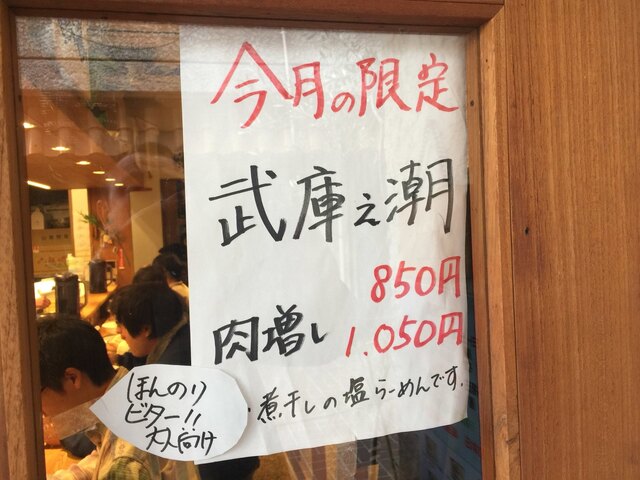 今月の限定
武庫之潮
850円
肉増し 1.050円
煮干しの塩らーめんです。
ほんのり
ビター!!
大人向け